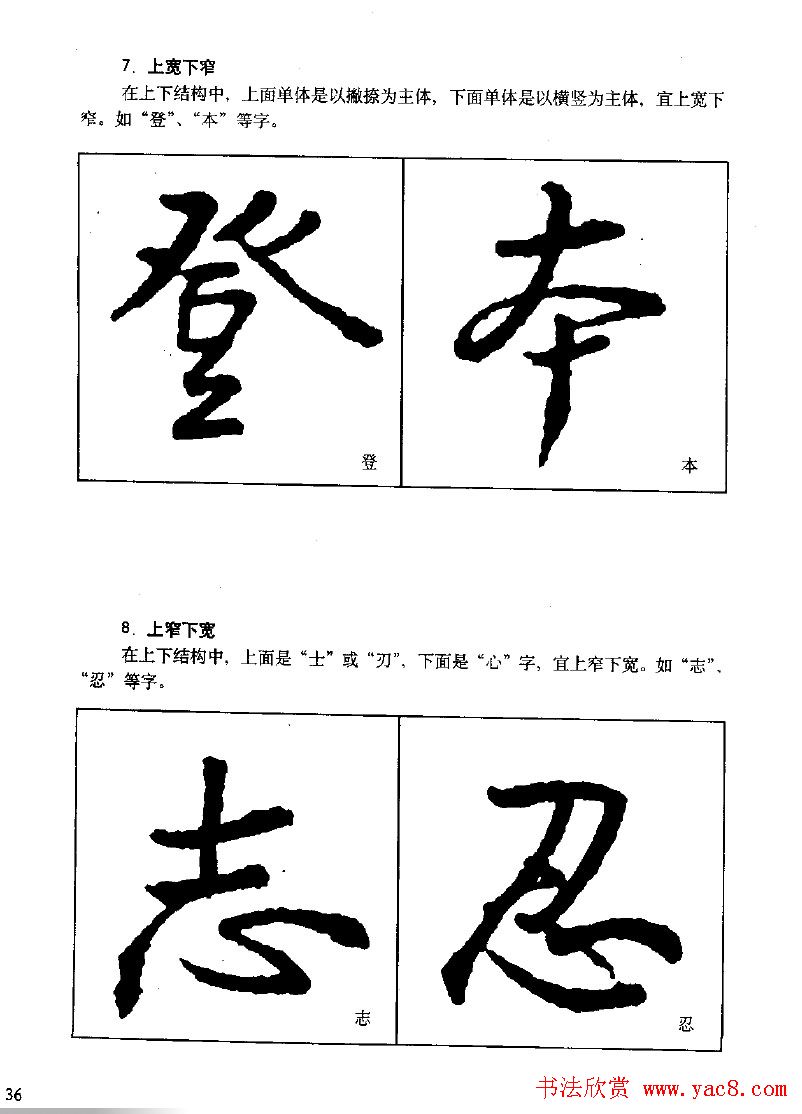 7. 上宽下窄
在上下结构中，上面单体是以撇捺为主体，下面单体是以横竖为主体，宜上宽下
窄。如“登”、“本”等字。
登 本
登 本
8. 上窄下宽
在上下结构中，上面是“士”或“刃”，下面是“心”字，宜上窄下宽。如“志”、
“忍”等字。
志 忍
志 忍
36
书法欣赏 www.yac8.com